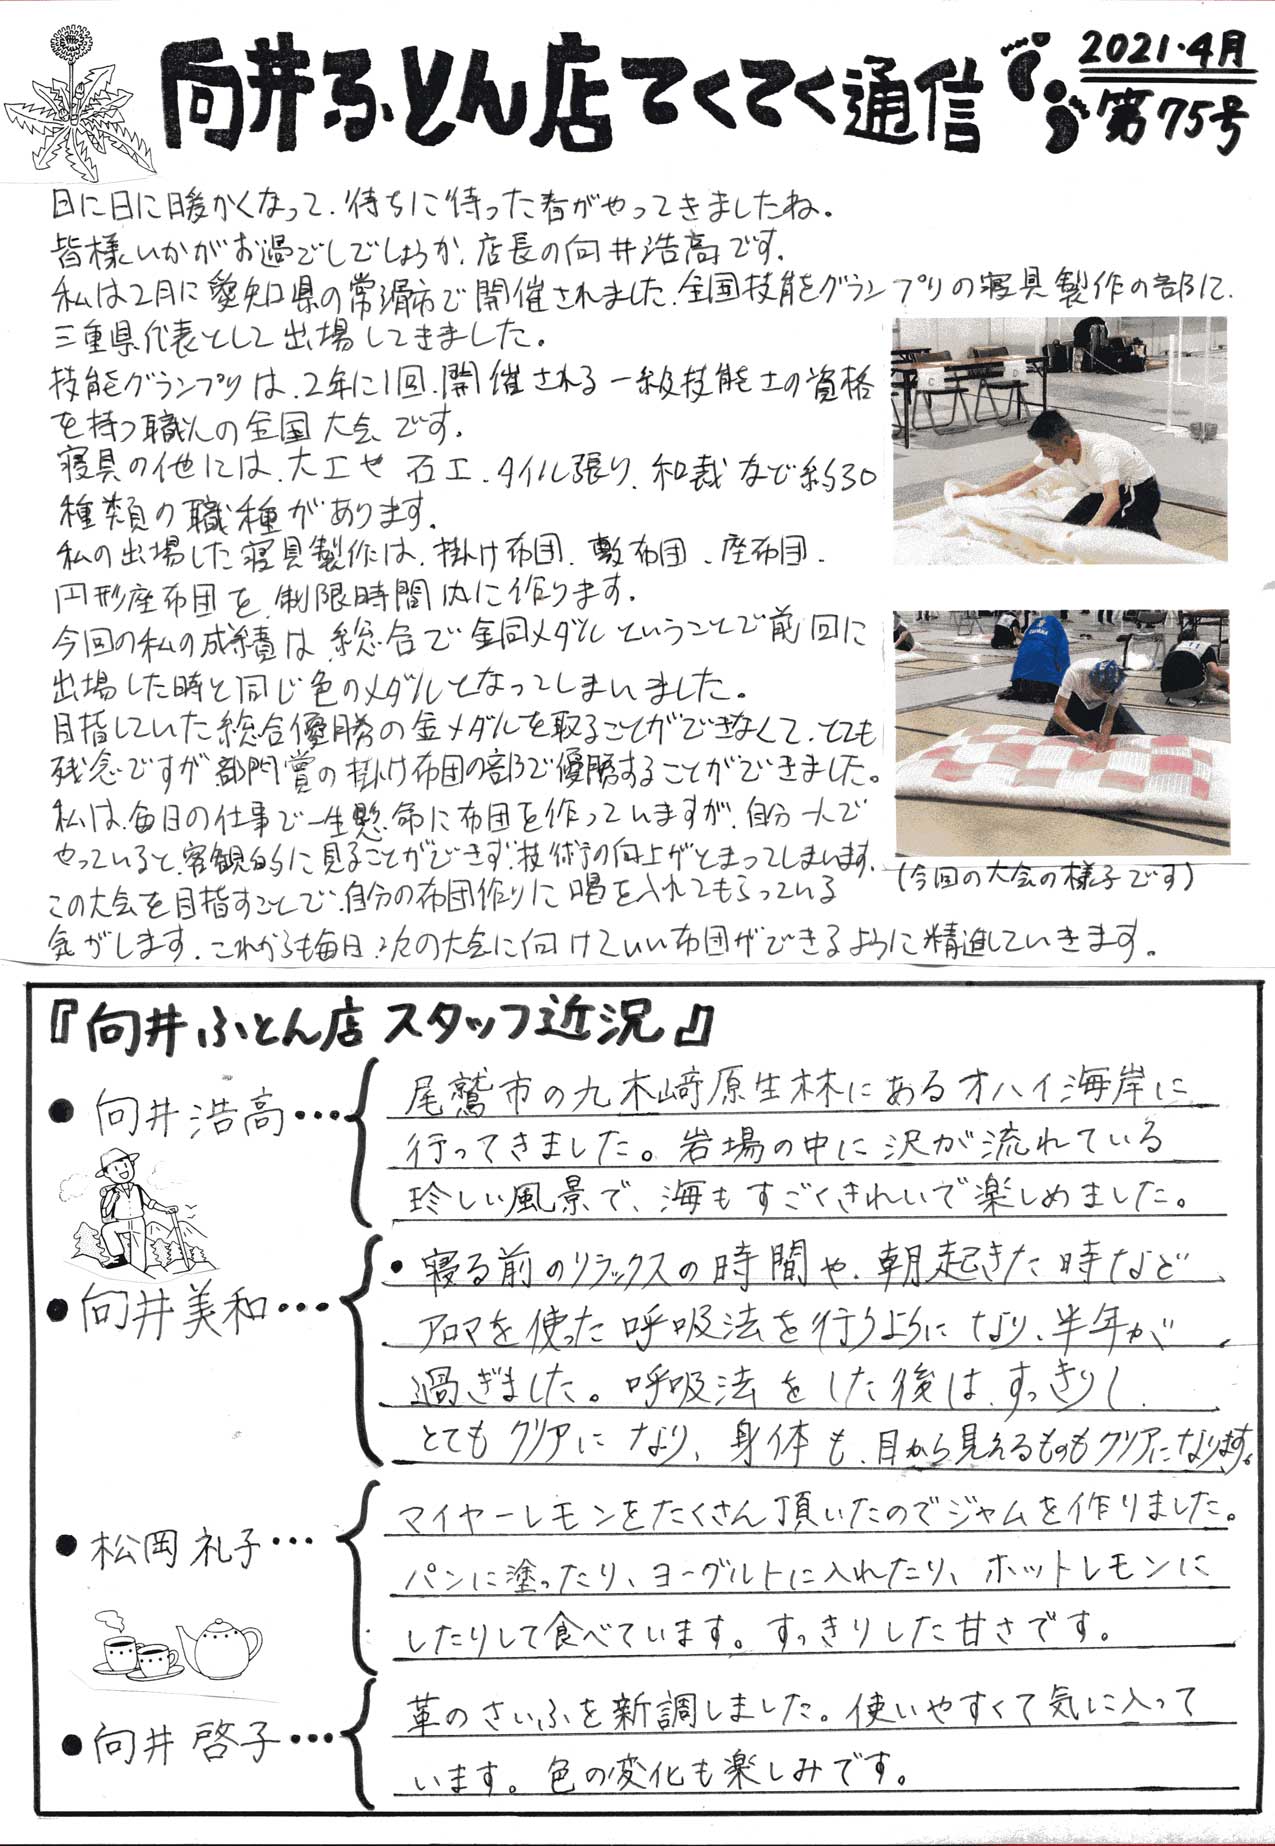 向井ふとん店てくてく通信
2021.4月
第75号
日に日に暖かくなって、待ちに待った春がやってきましたね。
皆様いかがお過ごしでしょうか、店長の向井浩高です。
私は2月に愛知県の常滑市で開催されました、全国技能グランプリの寝具製作の部に、
三重県代表として出場してきました。
技能グランプリは、2年に1回、開催される一級技能士の資格
を持つ職人の全国大会です。
寝具の他には、大工や石工、タイル張り、和裁など約30
種類の職種があります。
私の出場した寝具製作は、掛け布団、敷布団、座布団、
円形座布団を制限時間内に作ります。
今回の私の成績は、総合で銅メダルということで前回に
出場した時と同じ色のメダルとなってしまいました。
目指していた総合優勝の金メダルを取ることができなくて、とても
残念ですが部門賞の掛け布団の部で優勝することができました。
私は、毎日の仕事で一生懸命に布団を作っていますが、自分一人で
やっていると、客観的に見ることができず、技術の向上がとまってしまいます。
この大会を目指すことで、自分の布団作りに喝を入れてもらっている
気がします。これからも毎日、次の大会に向けていい布団ができるように精進していきます。
(今回の大会の様子です)
『向井ふとん店スタッフ近況』
●向井浩高…
尾鷲市の九木崎原生林にあるオハイ海岸に
行ってきました。岩場の中に沢が流れている
珍しい風景で、海もすごくきれいで楽しめました。
●向井美和…
・寝る前のリラックスの時間や、朝起きた時など
アロマを使った呼吸法を行うようになり、半年が
過ぎました。呼吸法をした後は、すっきりし、
とてもクリアになり、身体も、目から見えるものもクリアになります。
●松岡礼子…
マイヤーレモンをたくさん頂いたのでジャムを作りました。
パンに塗ったり、ヨーグルトに入れたり、ホットレモンに
したりして食べています。すっきりした甘さです。
●向井啓子…
革のさいふを新調しました。使いやすくて気に入って
います。色の変化も楽しみです。